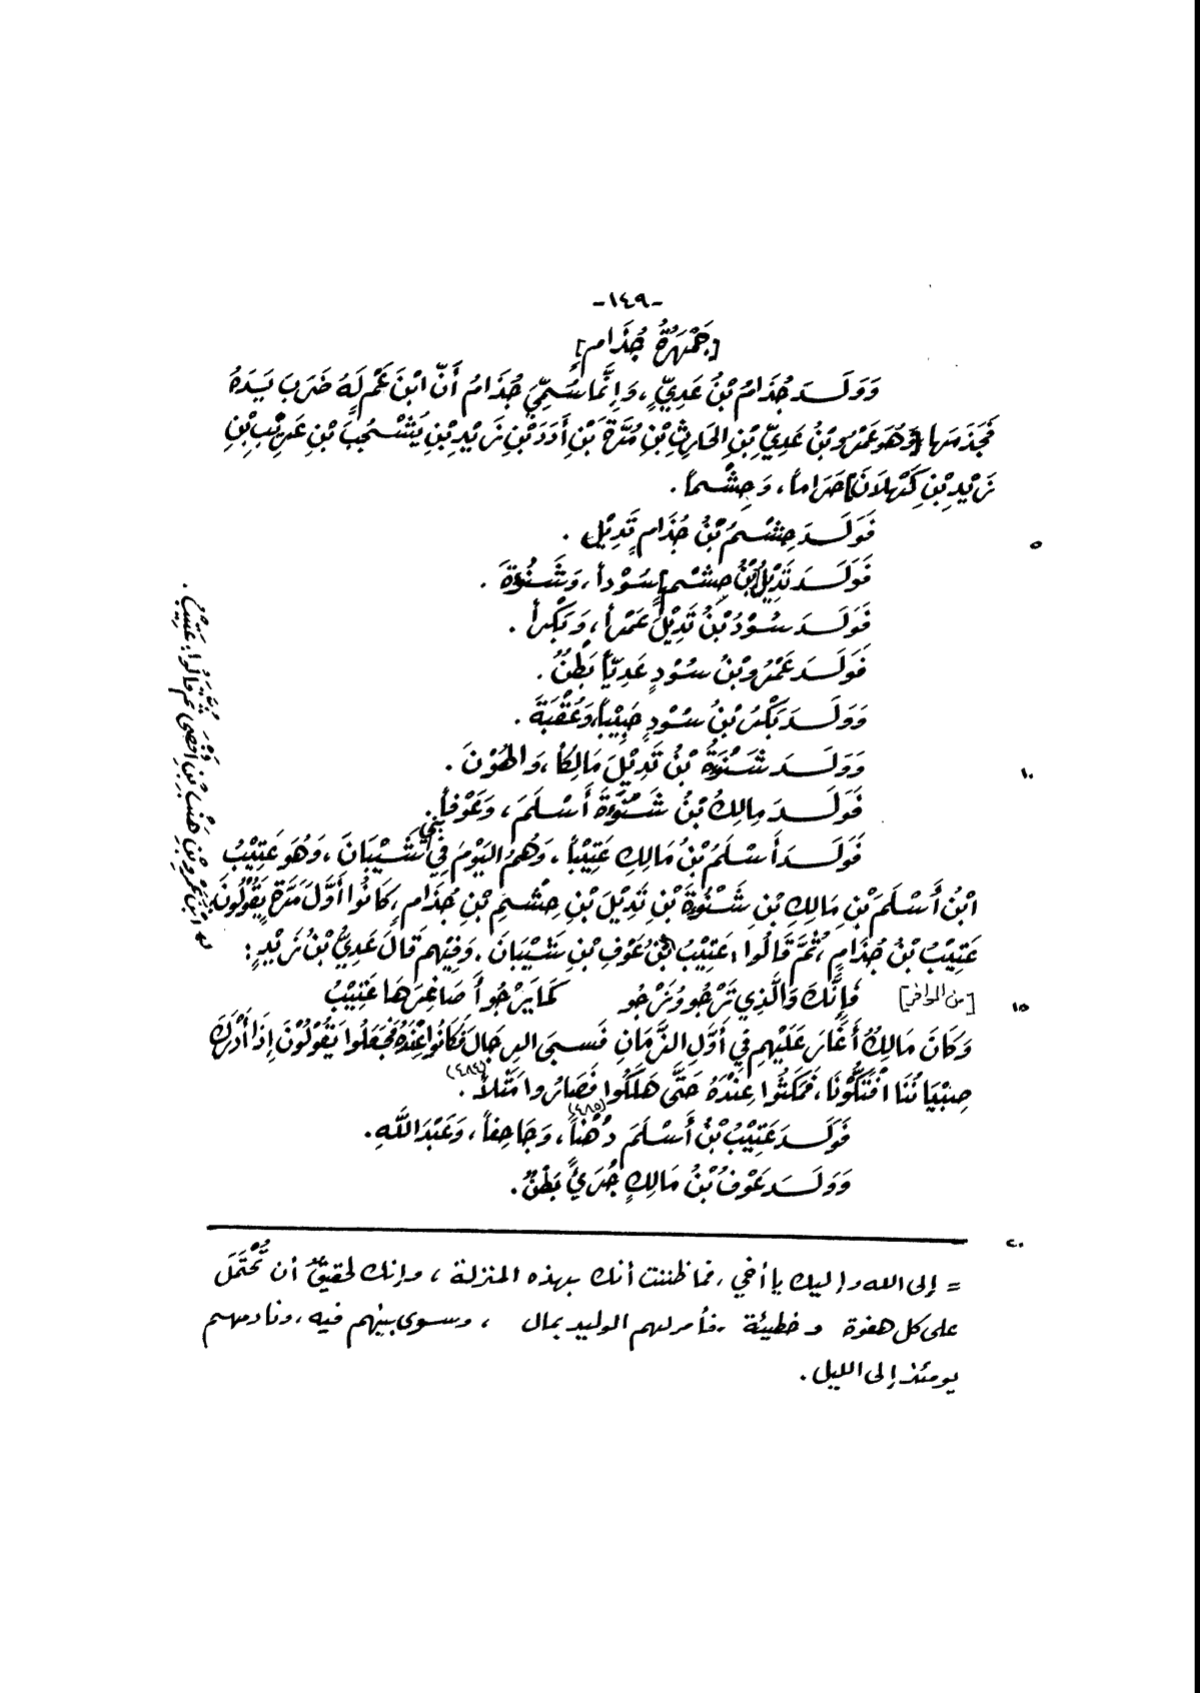 -١٤٩-
[جَمْهَرَةُ جُذَامٍ]
وَوَلَـدَ جُذَامُ بْنُ عَدِيٍّ، وَإِنَّمَا سُمِّيَ جُذَامُ أَنَّ ابْنَ عَمٍّ لَهُ ضَرَبَ يَدَهُ
فَجَذَمَهَا [وَهُوَ عَمْرُو بْنُ عَدِيِّ بْنِ الحَارِثِ بْنِ مُرَّةَ بْنِ أُدَدَ بْنِ زَيْدِ بْنِ يَشْجُبَ بْنِ عَرِيْبِ بْنِ
زَيْدِ بْنِ كَهْلَانَ] حَرَاماً، وَحِشْماً.
فَوَلَـدَ حِشْمُ بْنُ جُذَامٍ تَدِيْلَ.
٥
فَوَلَـدَ تَدِيْلُ [بْنُ حِشْمٍ] سُوْداً، وَشَنُوْءَةَ.
فَوَلَـدَ سُوْدُ بْنُ تَدِيْلَ عَمْراً، وَبَكْراً.
فَوَلَـدَ عَمْرُو بْنُ سُوْدٍ عَدِيّاً بَطْنٌ.
وَوَلَـدَ بَكْرُ بْنُ سُوْدٍ حَبِيْباً، وَعُقْبَةَ.
وَوَلَـدَ شَنُوْءَةُ بْنُ تَدِيْلَ مَالِكاً، وَالهُوْنَ.
١٠
فَوَلَـدَ مَالِكُ بْنُ شَنُوْءَةَ أَسْلَمَ، وَعَوْفاً.
فَوَلَـدَ أَسْلَمُ بْنُ مَالِكٍ عَتِيْباً، وَهُمُ اليَوْمَ فِي بَنِي شَيْبَانَ، وَهُوَ عَتِيْبُ
ابْنُ أَسْلَمَ بْنِ مَالِكِ بْنِ شَنُوْءَةَ بْنِ تَدِيْلَ بْنِ حِشْمِ بْنِ جُذَامٍ، كَانُوا أَوَّلَ مَرَّةٍ يَقُوْلُونَ:
عَتِيْبُ بْنُ جُذَامٍ، ثُمَّ قَالُوا: عَتِيْبُ بْنُ عَوْفِ بْنِ شَيْبَانَ. وَفِيْهِم قَالَ عَدِيُّ بْنُ زَيْدٍ:
[من الوافر] فَإِنَّكَ وَالَّذِي تَرْجُو وَنَرْجُو كَمَا يَرْجُو أَصَاغِرَهَا عَتِيْبُ
١٥
وَكَانَ مَالِكٌ أَغَارَ عَلَيْهِم فِي أَوَّلِ الزَّمَانِ فَسَبَى الرِّجَالَ فَكَانُوا عِنْدَهُ فَجَعَلُوا يَقُوْلُوْنَ إِذَا أَدْرَكَ
صِبْيَانُنَا افْتَكُّونَا، فَمَكَثُوا عِنْدَهُ حَتَّى هَلَكُوا فَصَارُوا مَثَلاً (٤٨٤).
فَوَلَـدَ عَتِيْبُ بْنُ أَسْلَمَ دُهْناً (٤٨٥)، وَجَاحِفاً، وَعَبْدَ اللَّهِ.
وَوَلَـدَ عَوْفُ بْنُ مَالِكٍ جُرَيٌّ بَطْنٌ.
٢٠
= إلى الله وإليك يا أخي، فما ظننت أنك بهذه المنزلة، وإنك لحقيقٌ أن تُحْتَمَلَ
على كل هفوة وخطيئة. فأمر لهم الوليد بمال، وسوى بينهم فيه، ونادمهم
يومئذ إلى الليل.